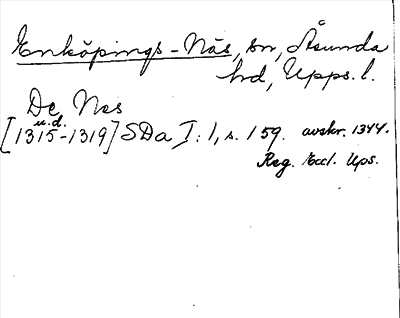 Enköpings-Näs, sn, Åsunda
hd, Upps. l.
De Nes
u.d.
[1315-1319] SDa I:1, s. 159. avskr. 1344.
Reg. Eccl. Ups.